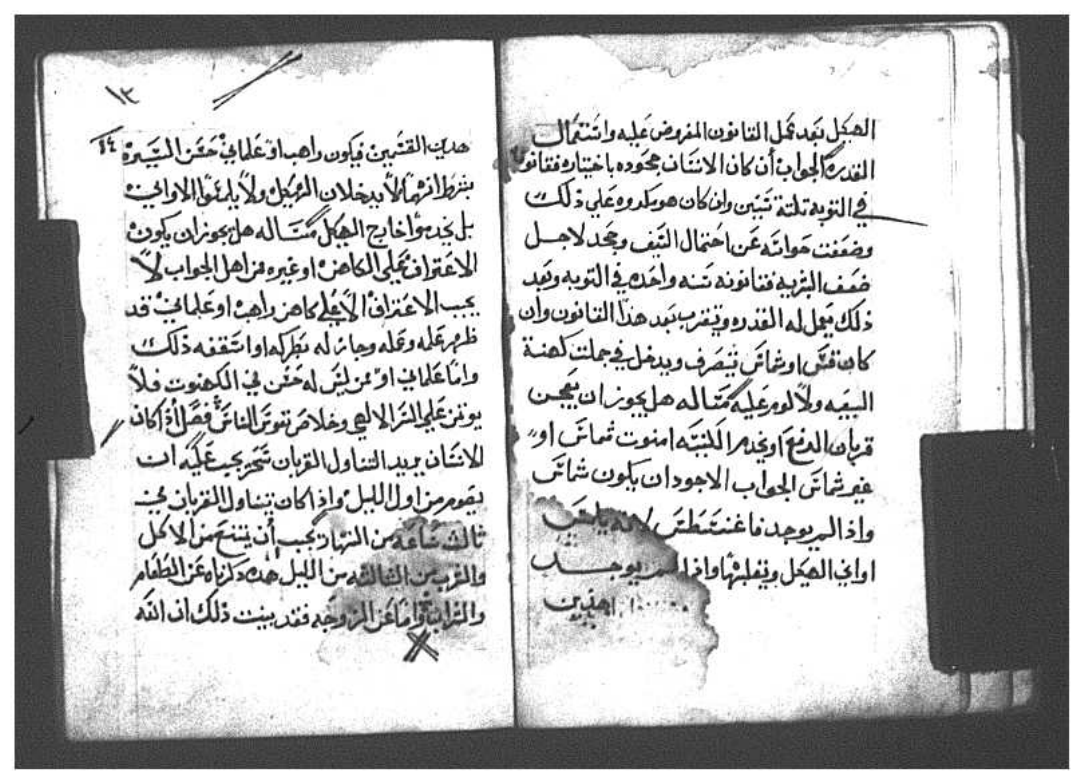 الهيكل بعد عمل القانون المفروض عليه واشتعمال
القدس الجواب أن كان الانسان جحوده باختياره فقانونه
في التوبة تلتة سنين وان كان هو مكروه علي ذلك
وضعفت حواسه عن احتمال السيف وجحد لاجل
ضعف البشرية فقانونه سنه واحده في التوبه وبعد
ذلك يعمل له القدس ويتقرب بعد هذا القانون وان
كان قس او شماس يتصرف ويدخل في جملت كهنة
البيعه ولا لوم عليه مساله هل يجوز ان يعجن
قربان او يخدم الكنيسه شماس او
غير شماس الجواب الاجود ان يكون شماس
واذا لم يوجد فاغنسطس لانه يلمس
اواني الهيكل ويغليها واذا لم يوجد
هذين
١٢
٤٤
هدين القسمين فيكون راهب او علماني حسن السيره
بشرط انهما لا يدخلان الهيكل ولا يلمسوا الاواني
بل يخدموا خارج الهيكل مساله هل يجوز ان يكون
الاعتراف علي الكاهن او غيره من اهل الجواب لا
يجب الاعتراف الا علي كاهن راهب او علماني قد
ظهر علمه وعمله وجائز له بطركه او اسقفه ذلك
واما علماني او من ليس له حسن في الكهنوت فلا
يوتمن علي السر الالهي وخلاص نفوس الناس فصل أذا كان
الانسان يريد التناول القربان سحر يجب عليه ان
يصوم من اول الليل واذا كان يتناول القربان في
ثالث ساعه من النهار يجب أن يمتنع من الاكل
والشرب من الثالثه من الليل هده دكرناه عن الطعام
والشراب واما عن الزوجه فقد بينت ذلك ان الله